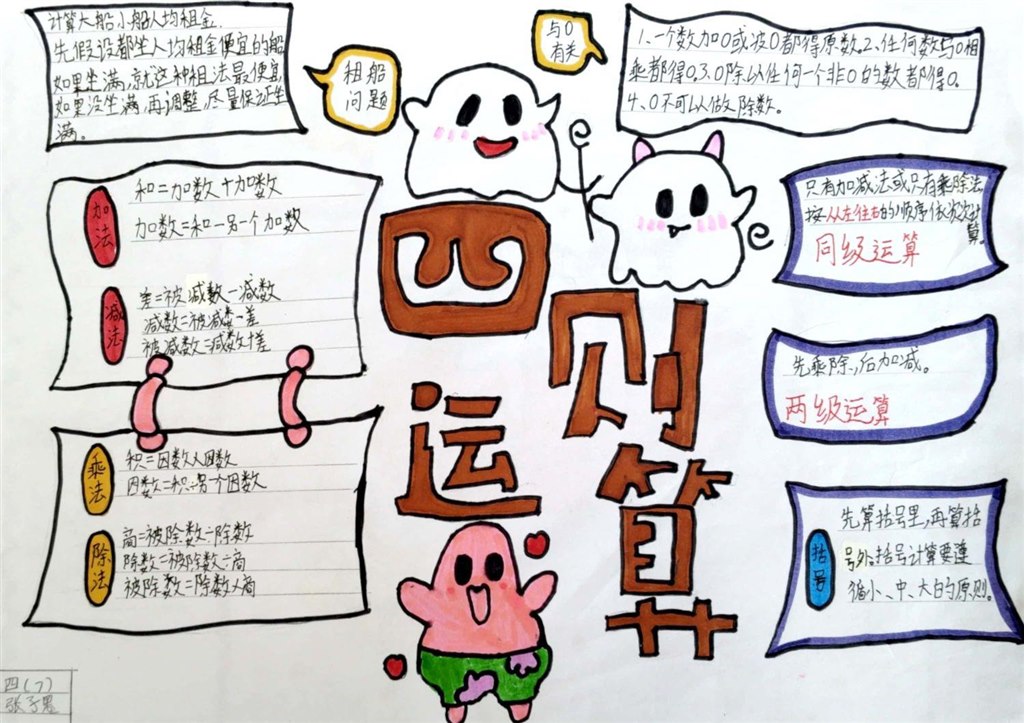 计算大船小船人均租金.
先假设都坐人均租金便宜的船
如果坐满,就这种租法最便宜
如果没坐满,再调整,尽量保证坐
满。
租船
问题
与0
有关
1、一个数加0或按0都得原数。2、任何数与0相
乘都得0。3、0除以任何一个非0的数都得0。
4、0不可以做除数。
加法
和=加数+加数
加数=和-另一个加数
减法
差=被减数-减数
减数=被减数-差
被减数=减数+差
乘法
积=因数×因数
因数=积÷另个因数
除法
商=被除数÷除数
除数=被除数÷商
被除数=除数×商
四
则
运
算
只有加减法或只有乘除法
按从左往右的顺序依次计
算。
同级运算
先乘除,后加减。
两级运算
括号
先算括号里,再算括
号外,括号计算要遵
循小、中、大的原则。
四(7)
张子